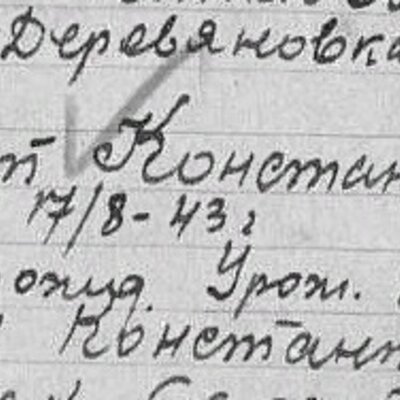 Деревяновка
т Констан
17/8-43 г
ожид. Урож.
Констант